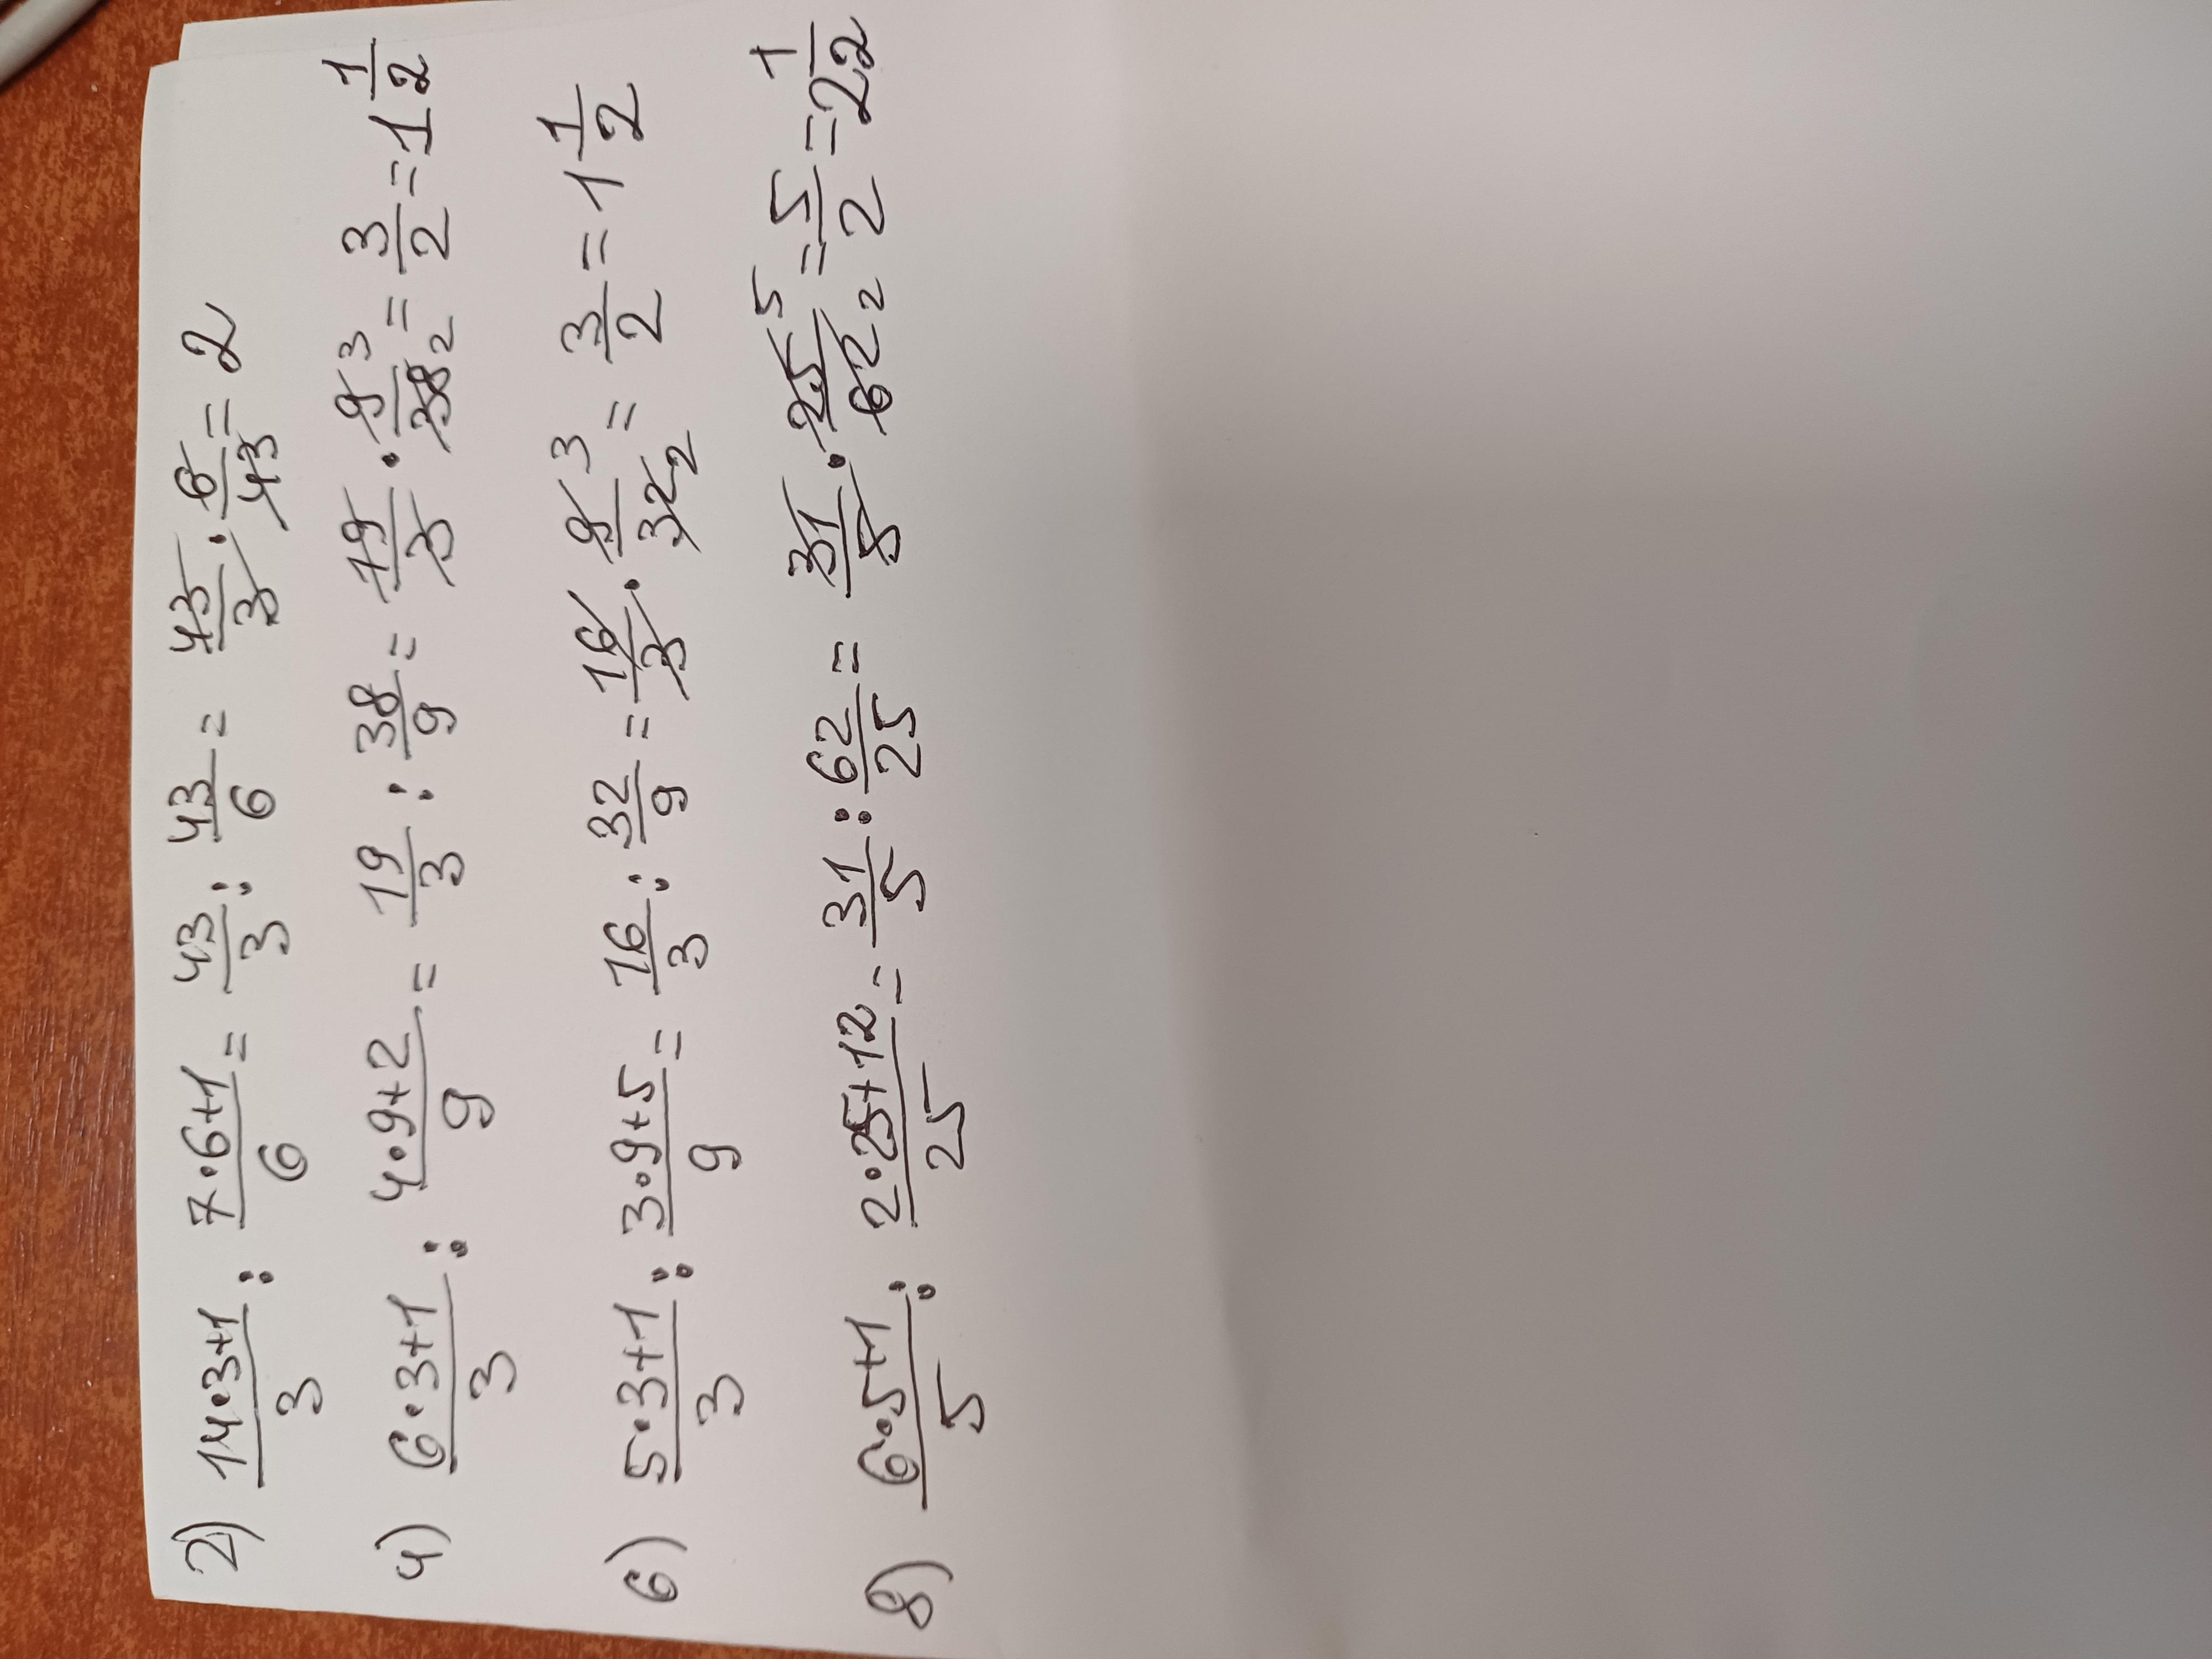 2) (14·3+1)/3 : (7·6+1)/6 = 43/3 : 43/6 = 43/3 · 6/43 = 2
4) (6·3+1)/3 : (4·9+2)/9 = 19/3 : 38/9 = 19/3 · 9/38 3 2 = 3/2 = 1 1/2
6) (5·3+1)/3 : (3·9+5)/9 = 16/3 : 32/9 = 16/3 · 9/32 3 2 = 3/2 = 1 1/2
8) (6·5+1)/5 : (2·25+12)/25 = 31/5 : 62/25 = 31/5 · 25/62 5 2 = 5/2 = 2 1/2